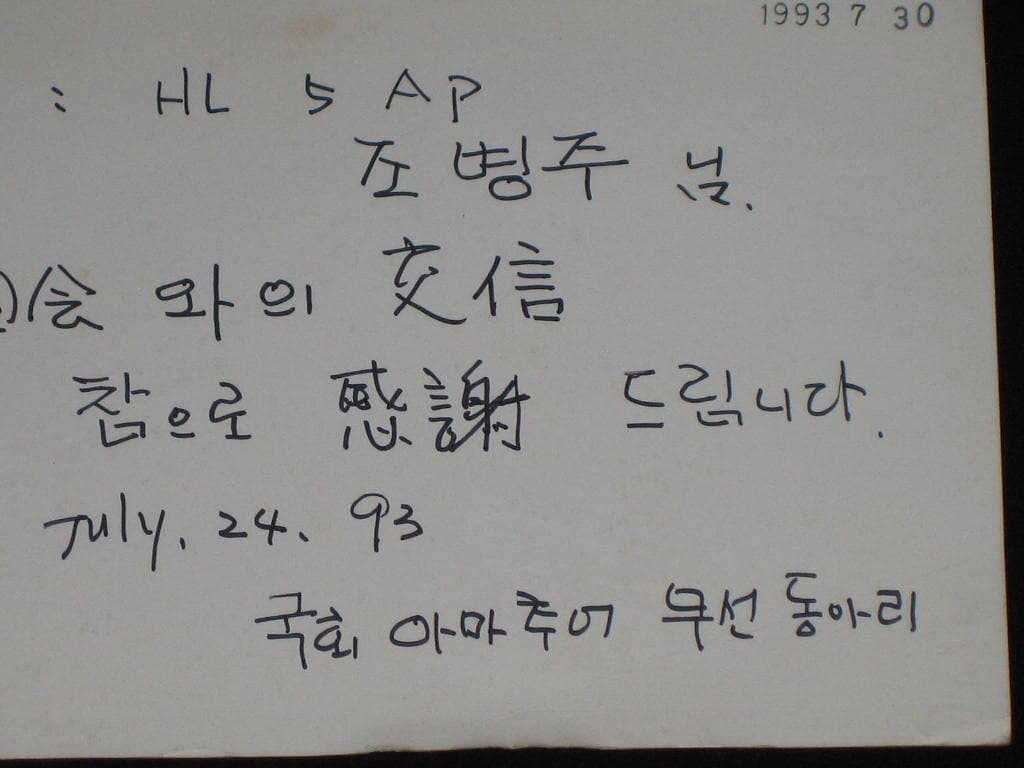 1993 7 30
: HL 5 AP
조병주 님.
会 와의 交信
참으로 感謝 드립니다.
July. 24. 93
국회 아마추어 무선 동아리